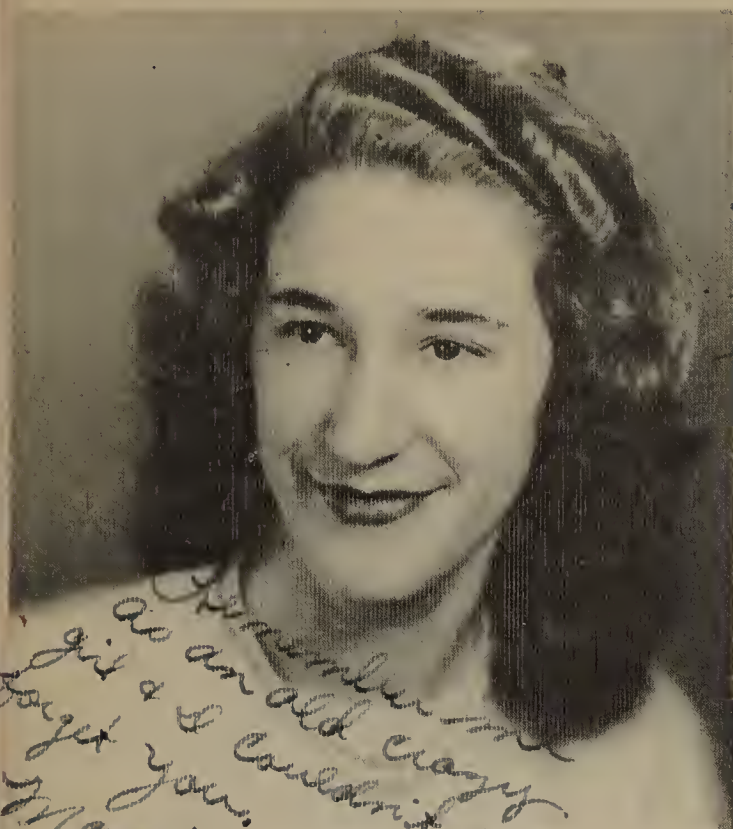 Remember me
as an old crazy
& I couldn't
forget you.